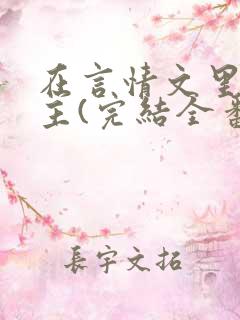 在言情文里
主(完結全番
長宇文拓